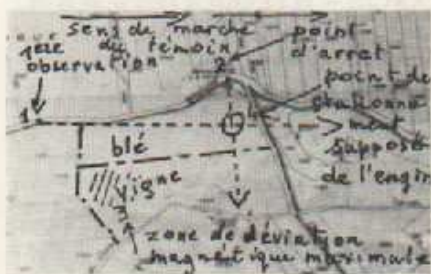 sens de marche
du témoin
1ère
observation
2
point
d'arret
point de
stationne
ment
supposé
de l'engin
1
blé
vigne
zone de déviation
magnétique maximale